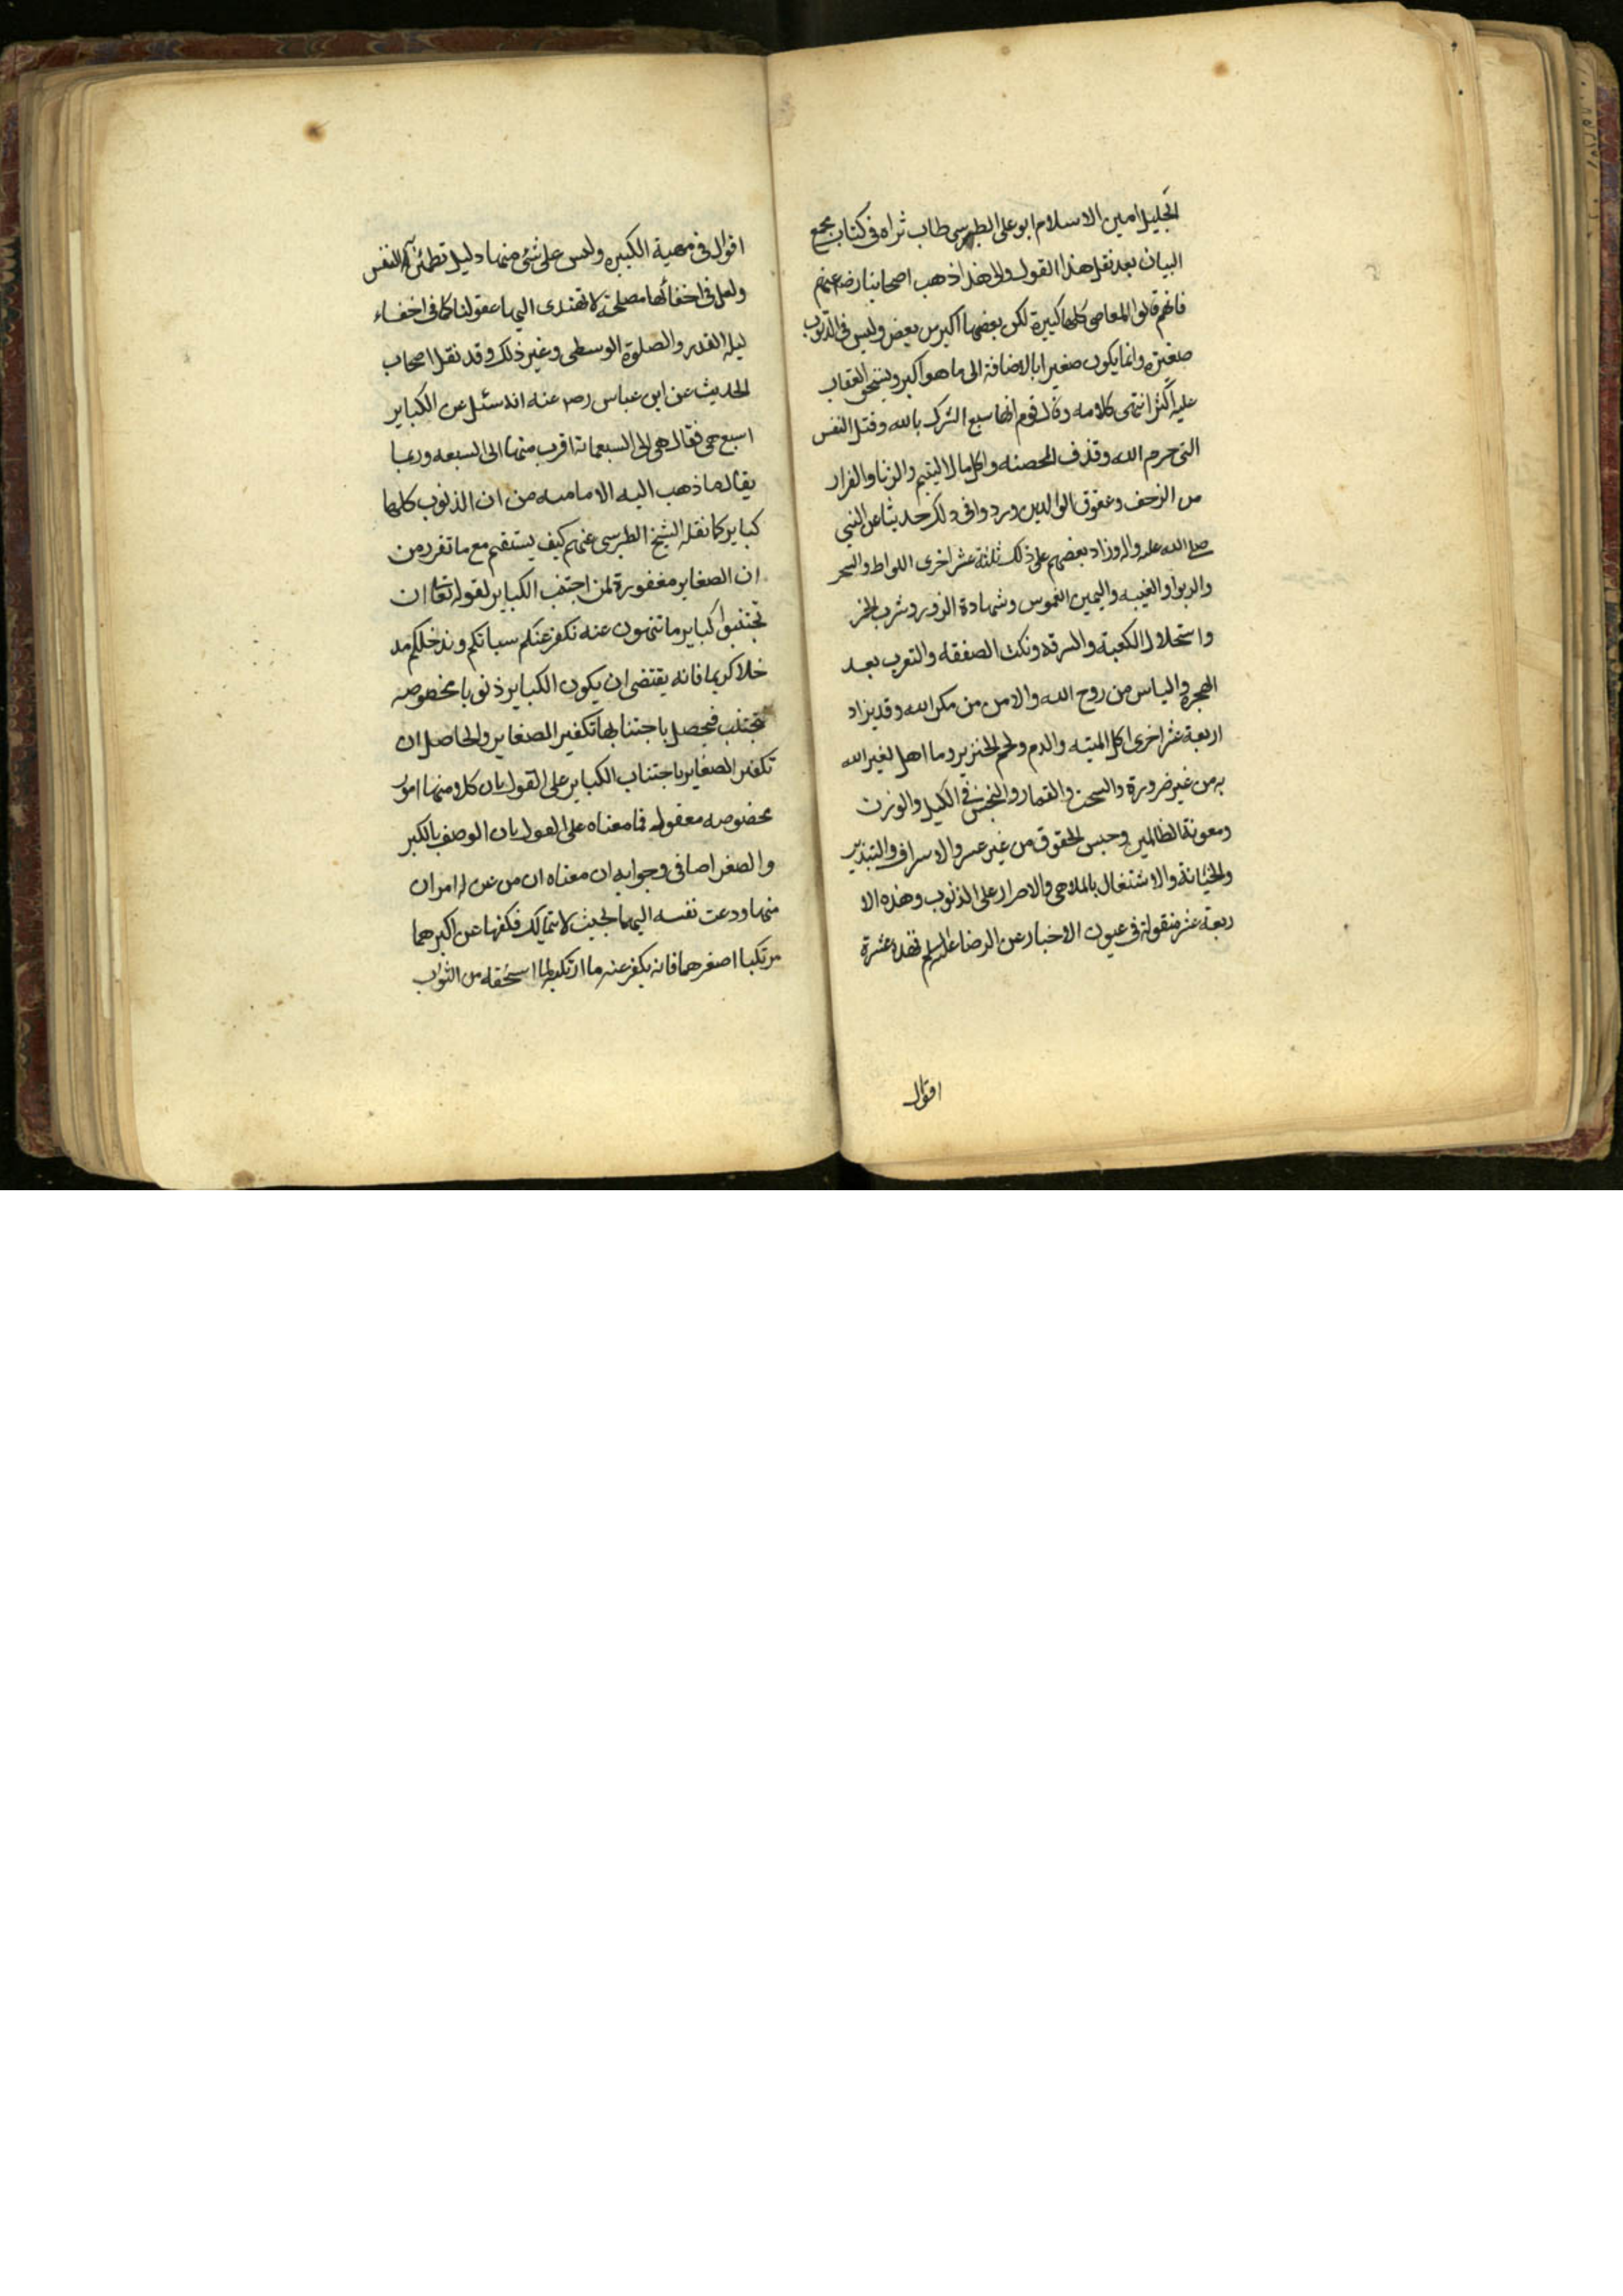 الجليل امين الاسلام ابو على الطبرسى طاب ثراه فى كتاب مجمع
البيان بعد نقل هذا القول والى هذا ذهب اصحابنا رضى عنهم
فانهم قالوا المعاصى كلها كبيرة لكن بعضها اكبر من بعض وليس فى الذنوب
صغيرة وانما يكون صغيرا بالاضافة الى ما هو اكبر ويستحق العقاب
عليه اكثر انتهى كلامه وقال قوم انها سبع الشرك بالله وقتل النفس
التى حرم الله وقذف المحصنه واكل مال اليتيم والزنا والفرار
من الزحف وعقوق الوالدين ورووا فى ذلك حديثا عن النبى
صلى الله عليه واله وزاد بعضهم على ذلك ثلثة عشر اخرى اللواط والسحر
والربوا والغيبه واليمين الغموس وشهادة الزور وشرب الخمر
واستحلال الكعبة والسرقه ونكث الصفقه والتعرب بعد
الهجره والياس من روح الله والامن من مكر الله وقد يزاد
اربعة عشر اخرى اكل الميته والدم ولحم الخنزير وما اهل لغير الله
به من غير ضرورة والسحت والقمار والبخس فى الكيل والوزن
ومعونة الظالمين وحبس الحقوق من غير عسر والاسراف والتبذير
والخيانة والاشتغال بالملاهى والاصرار على الذنوب وهذه الا
ربعة عشر منقولة فى عيون الاخبار عن الرضا عليه السلم فهذه عشرة
اقوال
اقوال فى مهية الكبيره وليس على شئ منها دليل تطمئن به النفس
ولعل فى اخفائها مصلحة لا تهتدى اليها عقولنا كما فى اخفاء
ليلة القدر والصلوة الوسطى وغير ذلك وقد نقل اصحاب
الحديث عن ابن عباس رضى عنه انه سئل عن الكباير
اسبع هى فقال هى الى السبعمائة اقرب منها الى السبعه وربما
يقال ما ذهب اليه الاماميه من ان الذنوب كلها
كباير كما نقله الشيخ الطبرسى عنهم كيف يستقيم مع ما تقرر من
ان الصغاير مغفورة لمن اجتنب الكباير لقوله تعالى ان
تجتنبوا كباير ما تنهون عنه نكفر عنكم سياتكم وندخلكم مد
خلا كريما فانه يقتضى ان يكون الكباير ذنوبا مخصوصه
تجتنب فيحصل باجتنابها تكفير الصغاير والحاصل ان
تكفير الصغاير باجتناب الكباير على القول بان كلا منها امور
مخصوصه معقول فما معناه على القول بان الوصف بالكبر
والصغر اضافى وجوابه ان معناه ان من عن له امران
منها ودعت نفسه اليهما بحيث لا يتمالك فكفها عن اكبرهما
مرتكبا اصغرهما فانه يكفر عنه ما ارتكبه لما استحقه من الثواب